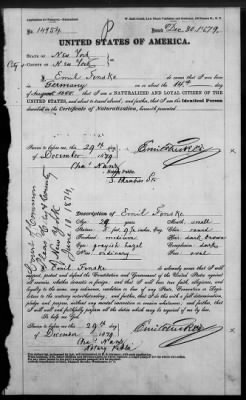 No. 14954
Issued Dec. 30, 1879.
UNITED STATES OF AMERICA.
STATE OF New York
City & COUNTY OF New York
I, Emil Finske do swear that I was born
in Germany on the 14th day
of August 1850 that I am a NATURALIZED AND LOYAL CITIZEN OF THE
UNITED STATES, and about to travel abroad; and further, that I am the Identical Person
described in the Certificate of Naturalization, herewith presented.
Sworn to before me this 29th
day of December 1879
Notary Public.
Court of Common
Pleas City & County
of New York
Description of Emil Finske
Age: 29 years
Mouth: small
Stature: 5 feet
Chin: round
Forehead: medium
Hair: dark brown
Eyes: grayish hazel
Complexion: dark
Nose: ordinary
Face: oval
I, Emil Finske do solemnly swear that I will
support, protect and defend the Constitution and Government of the United States against
all enemies, whether domestic or foreign; and that I will bear true faith, allegiance, and
loyalty to the same, any ordinance, resolution or law of any State, Convention or Legis-
lature to the contrary notwithstanding; and further, that I do this with a full determination,
pledge and purpose, without any mental reservation or evasion whatsoever; and further,
that I will well and faithfully perform all the duties which may be required of me by law.
So help me God.
Sworn to before me this 29th day
of December 1879
Notary Public